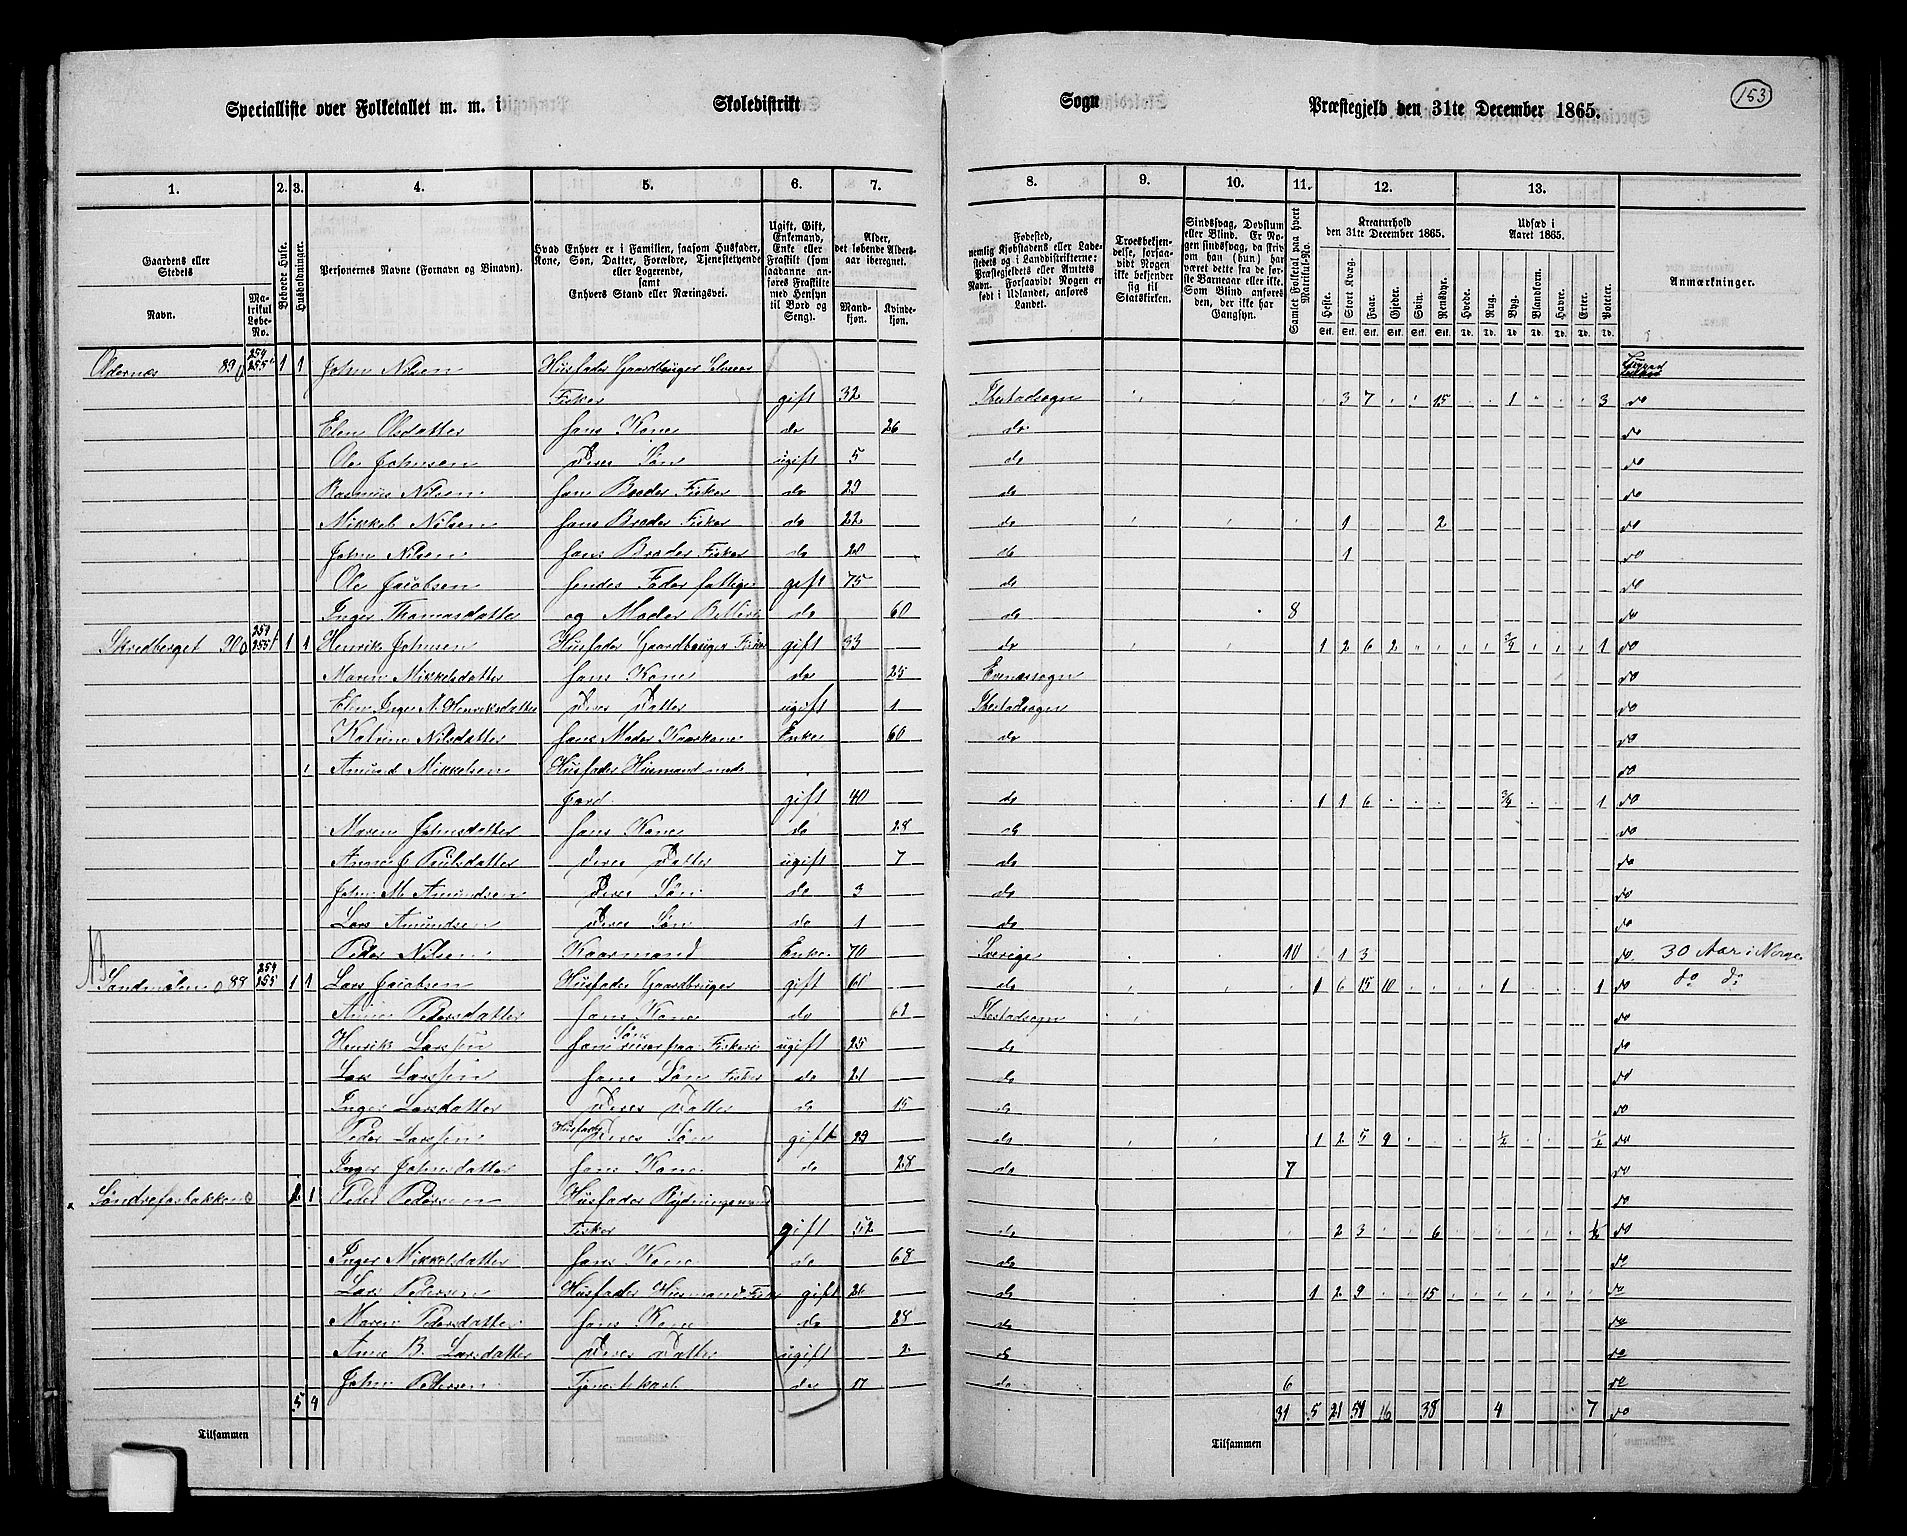 153
Specialliste over Folketallet m. m. i Skoledistrikt Sogn Præstegjeld den 31te December 1865.
1. 2. 3. 4. 5. 6. 7. 8. 9. 10. 11. 12. 13.
Gaardens eller Stedets Navn. Matrikul Løbe-No. Beboede Huse. Husholdninger. Personernes Navne (Fornavn og Binavn).
Hvad Enhver er i Familien, saasom Husfader, Kone, Søn, Datter, Forældre, Tjenestetyende eller Logerende, samt Enhvers Stand eller Næringsvei.
Ugift, Gift, Enkemand, Enke eller Fraskilt (som saadanne anføres Fraskilte med Hensyn til Bord og Seng).
Alder, det løbende Aldersaar iberegnet. Mandkjøn. Kvindekjøn.
Fødested, nemlig Kjøbstadens eller Ladestedets og i Landdistrikterne: Præstegjeldets eller Amtets Navn. Forsaavidt Nogen er født i Udlandet, anføres Landet.
Troesbekjendelse, forsaavidt Nogen ikke bekjender sig til Statskirken.
Sindssvag, Døvstum eller Blind. Er Nogen sindssvag, da skriv om han (hun) har været dette fra de første Barneaar eller ikke. Som Blind anføres den, der ikke har Gangsyn.
Samlet Folketal paa hvert Matrikul-No.
Kreaturhold den 31te December 1865. Heste. Stort Kvæg. Faar. Gjeder. Svin. Rensdyr.
Udsæd i Aaret 1865. Hvede. Rug. Byg. Blandkorn. Havre. Erter. Poteter.
Anmærkninger.
Odernæs 89 254 255 1 1 John Nilsen Husfader Gaardbruger
Fisker gift 32 Ibestadsogn 3 7 15 1 3 do
Elen Olsdatter hans Kone do 26 do do
Ole Johnsen Deres Søn ugift 5 do do
Rasmus Nilsen hans Broder Fisker do 29 do do
Mikkel Nilsen hans Broder Fisker do 22 do 1 2 do
John Nilsen hans Broder Fisker do 20 do 1 do
Ole Jacobsen hendes Fader gift 75 do do
Inger Thomasdatter og Moder do 60 do 8 do
Skredberget 90 254 255 1 1 Henrik Johnsen Husfader Gaardbruger Fisker gift 33 do 1 2 6 2 1 do
Maren Mikkelsdatter hans Kone do 25 Evenæssogn do
Elen Inger A Henriksdatter Deres Datter ugift 1 Ibestadsogn do
Katrine Nilsdatter hans Moder Kaarkone Enke 60 do do
1 Amund Mikkelsen Husfader Husmand med do
Jord gift 40 do 1 1 6 3/4 1 do
Maren Johnsdatter hans Kone do 28 do do
Anne J Paulsdatter deres Datter ugift 7 do do
John M. Amundsen Deres Søn do 3 do do
Lars Amundsen Deres Søn do 1 do do
Peder Nilsen Kaarmand Enke 70 Sverige 10 1 3 do 30 Aar i Norge
Sandmolen 88 254 255 1 1 Lars Jacobsen Husfader Gaardbruger gift 61 do 1 6 15 10 1 1 do do do
Anne Pedersdatter hans Kone do 61 Ibestadsogn do
Henrik Larssen hans Søn Fiskeri ugift 25 do do
Lars Larssen hans Søn Fisker do 21 do do
Inger Larsdatter Deres Datter do 15 do do
Peder Larssen Husfader Deres Søn gift 29 do 1 2 5 4 1/2 1/2 do
Inger Johnsdatter hans Kone do 28 do 7 do
Søndreforbakken 2 1 Peder Pedersen Husfader Rydningsmand do
Fisker gift 52 do 2 3 6 1/2 do
Inger Mikkelsdatter hans Kone do 68 do do
Lars Pedersen Husfader Husmand Fisker gift 26 do 1 2 9 15 do
Maren Pedersdatter hans Kone do 28 do do
Anne B. Larsdatter Deres Datter ugift 2 do do
John Pedersen Tjenestekarl do 17 do 6 do
5 4 31 5 21 54 16 38 4 7 do
Tilsammen Tilsammen